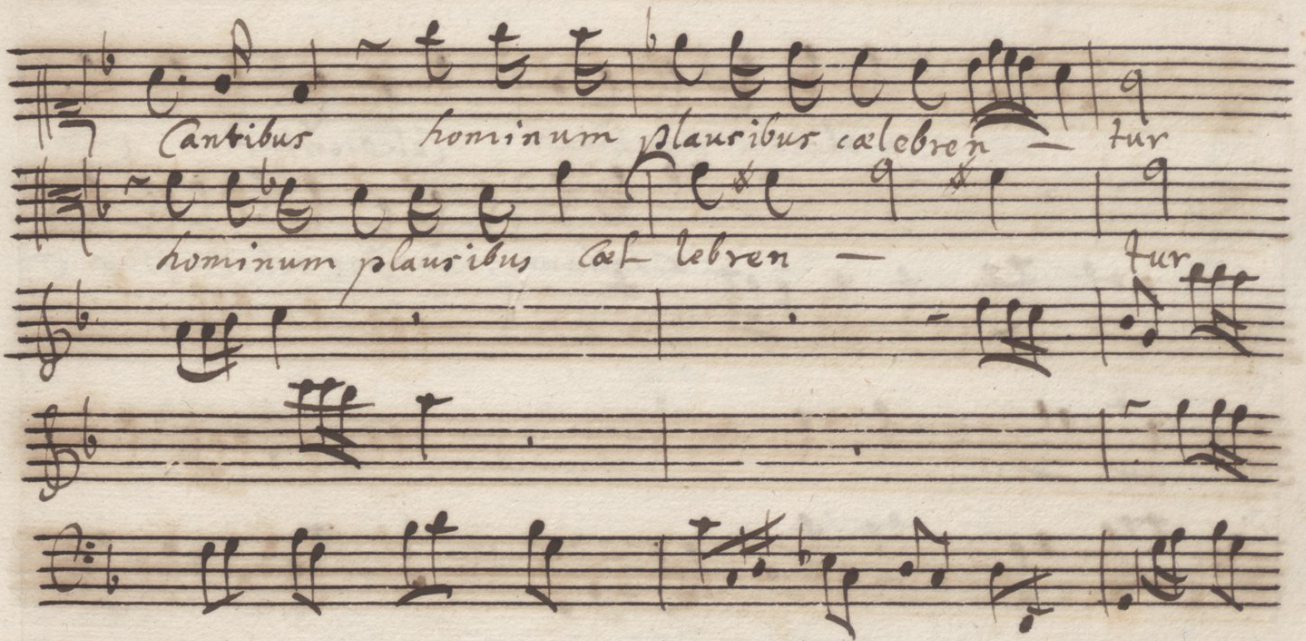 Cantibus hominum plausibus cælebren – tur
hominum plausibus Cæl lebren – tur